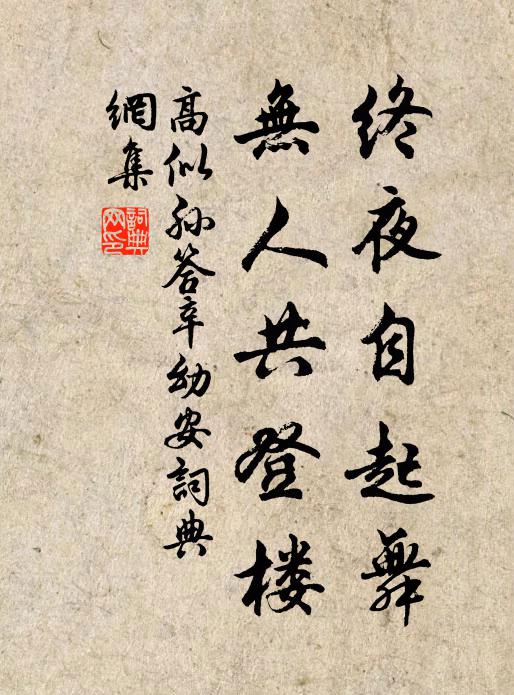 終夜自起舞
無人共登楼
高似孙答辛幼安詞典
網集
詞典
网印